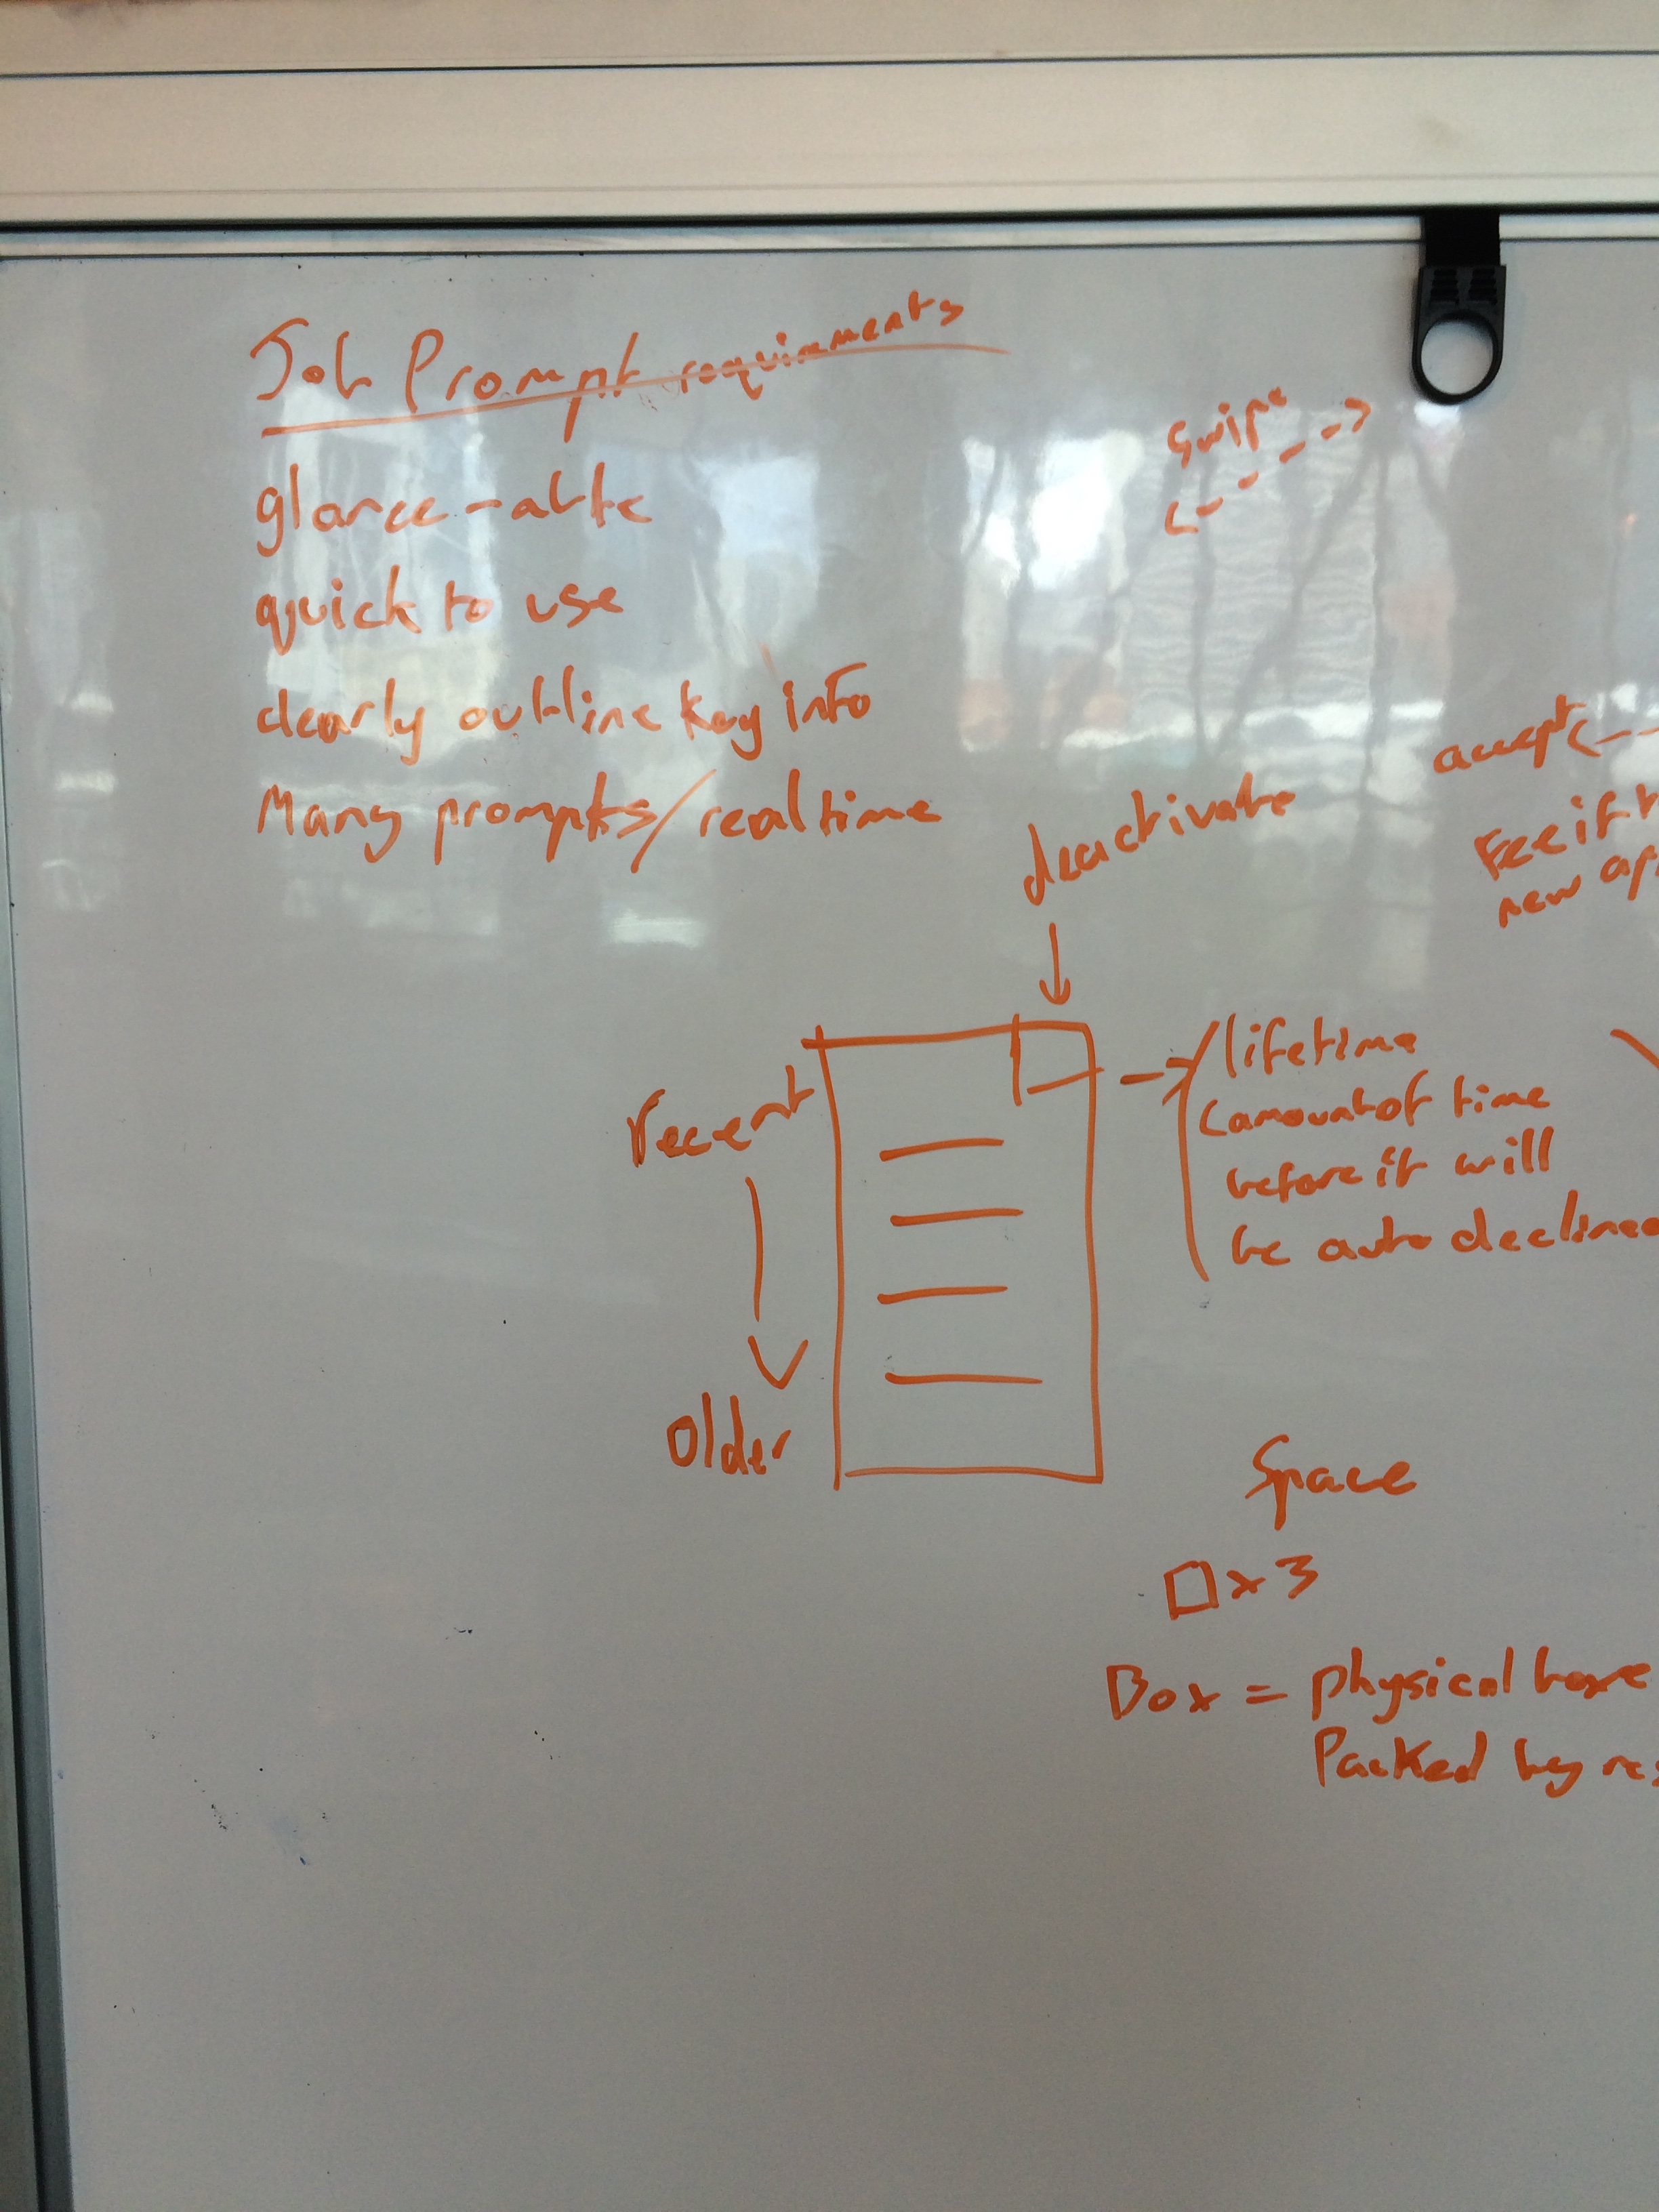 Job Prompt requirements
glance-able
quick to use
clearly outline key info
Many prompts/realtime
swipe
accept
Fee if
new
deactivate
recent
Older
lifetime
(amount of time
before it will
be auto declined
Space
□ x 3
Box = physical boxe
Packed by